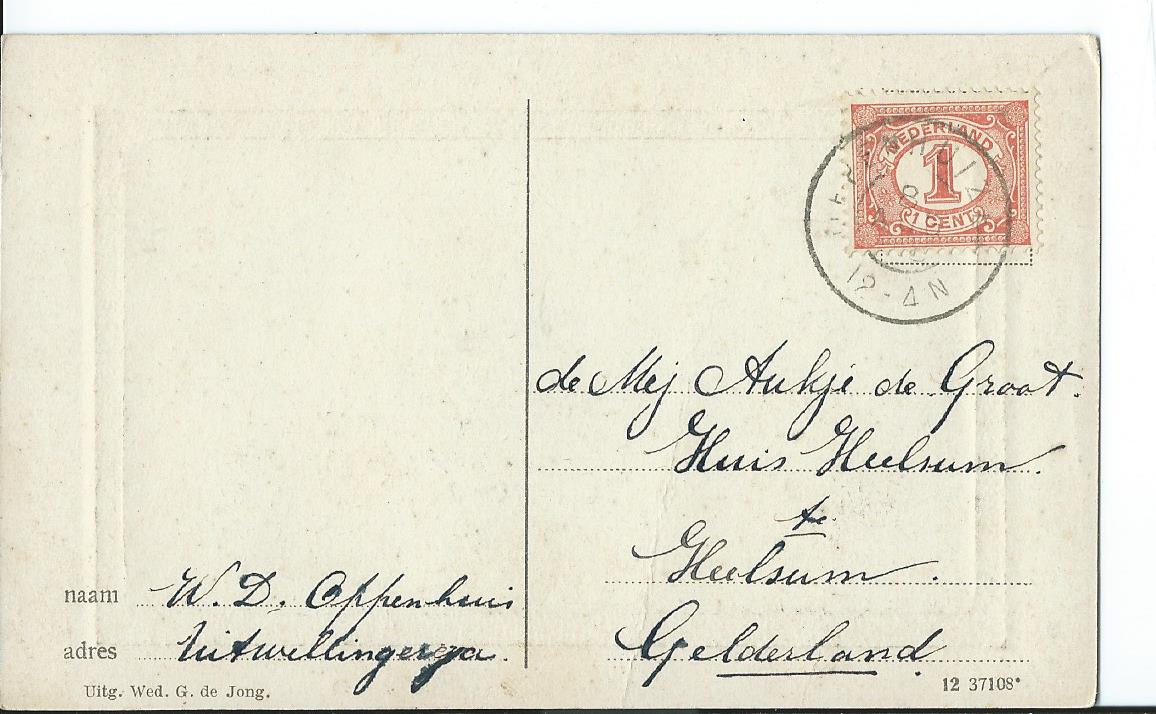 NEDERLAND
1
1 CENT
12-4N
de Mej Aukje de Groot.
Huis Heelsum.
te
Heelsum.
Gelderland.
naam W. D. Oppenhuis
adres Uitwellingerga.
Uitg. Wed. G. de Jong.
12 37108*